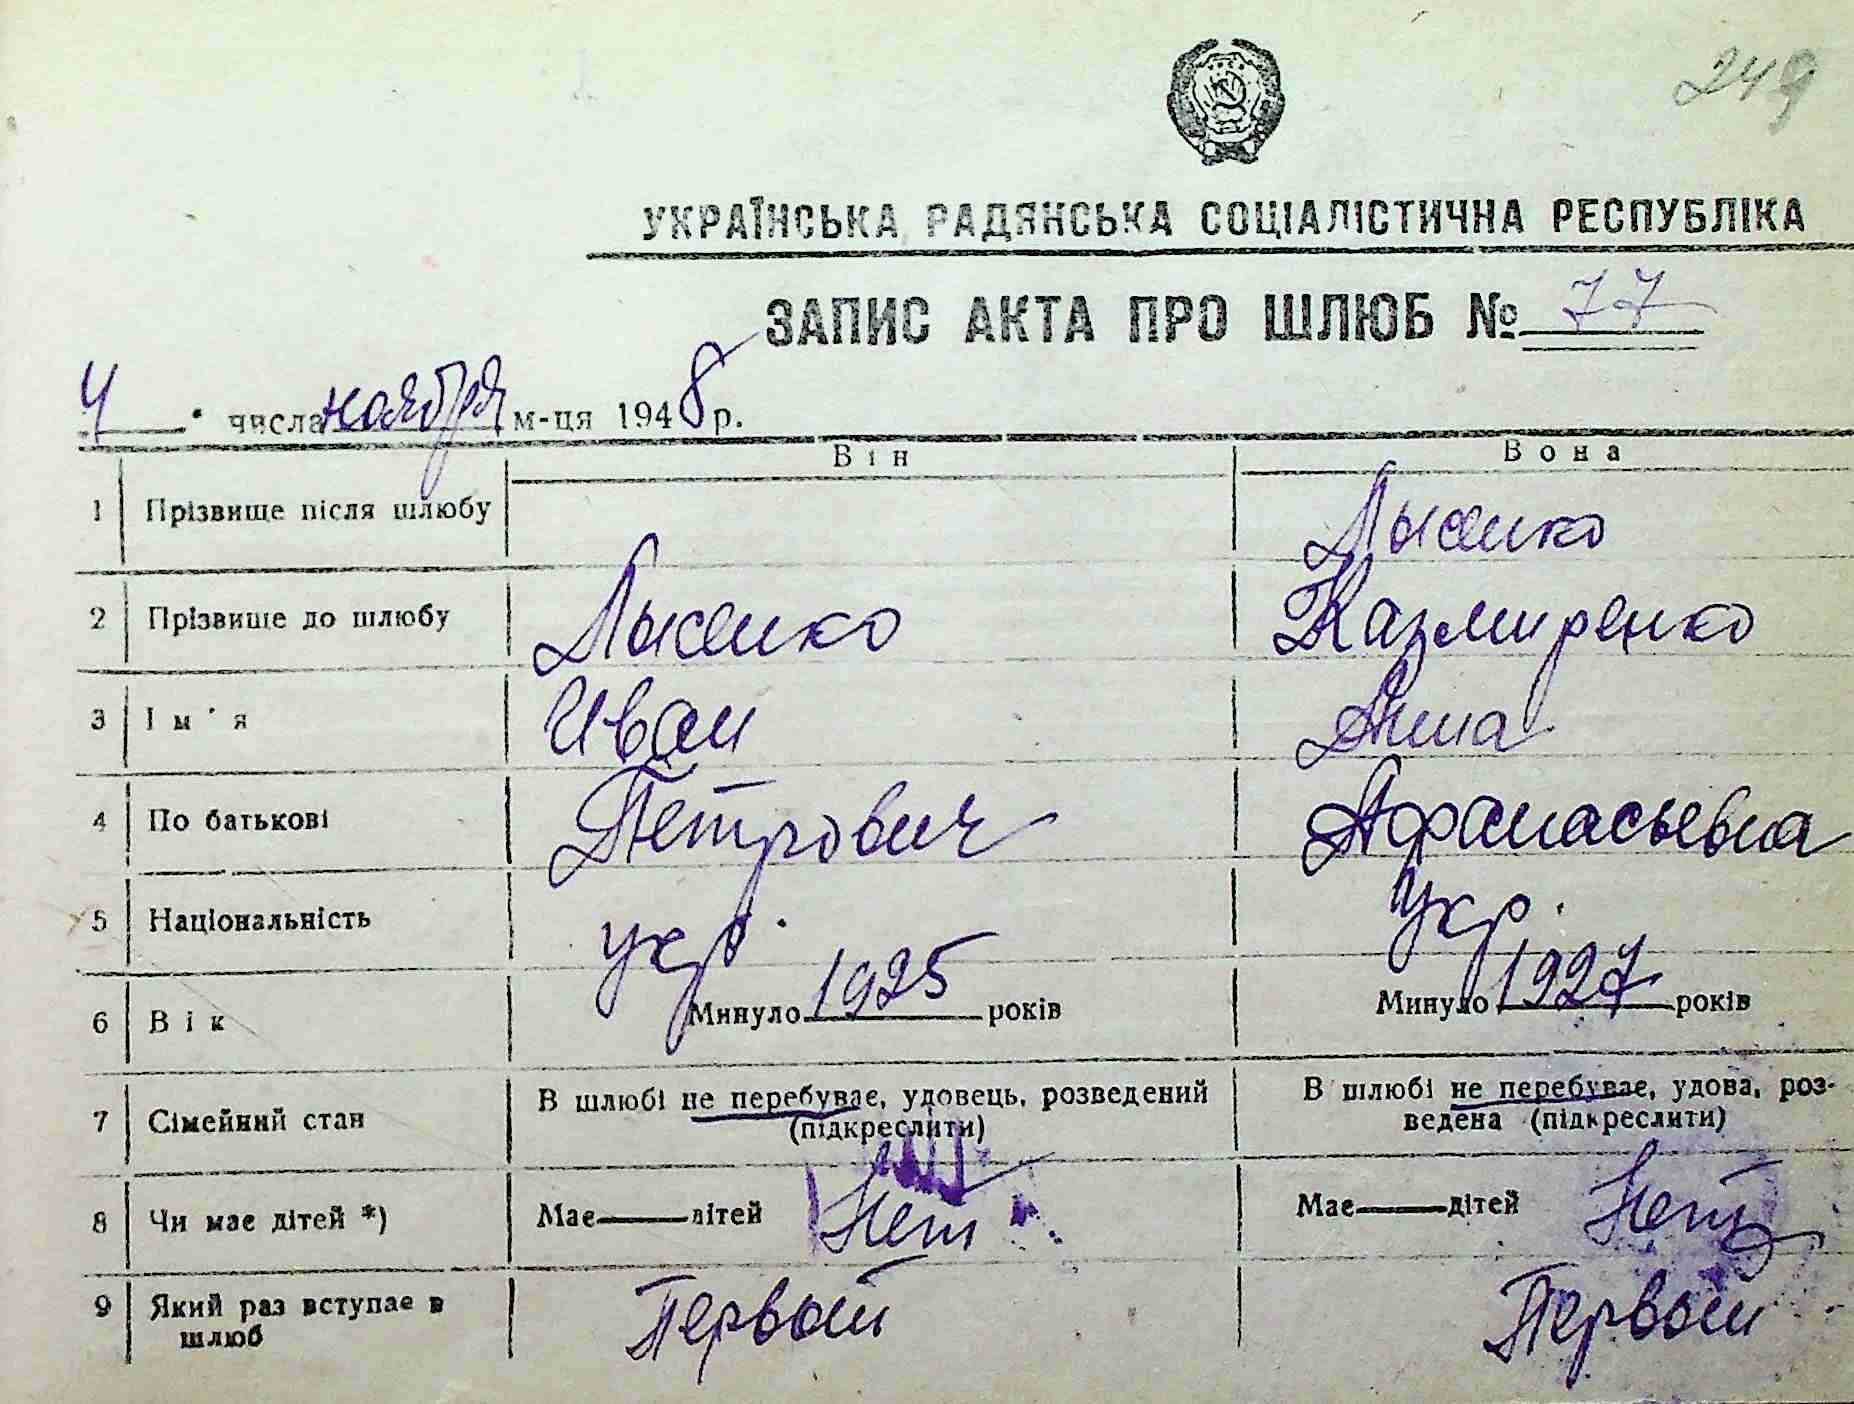 249
УКРАЇНСЬКА РАДЯНСЬКА СОЦІАЛІСТИЧНА РЕСПУБЛІКА
ЗАПИС АКТА ПРО ШЛЮБ № 77
4 " числа ноября м-ця 1948 р.
Він Вона
1 Прізвище після шлюбу Лысенко
2 Прізвище до шлюбу Лысенко Казмиренко
3 Ім'я Иван Анна
4 По батькові Петрович Афанасьевна
5 Національність укр. Укр.
6 Вік Минуло 1925 років Минуло 1927 років
7 Сімейний стан В шлюбі не перебуває, удовець, розведений (підкреслити) В шлюбі не перебуває, удова, роз-
ведена (підкреслити)
8 Чи має дітей *) Має — дітей Нет Має — дітей Нет
9 Який раз вступає в Первый Первый
шлюб